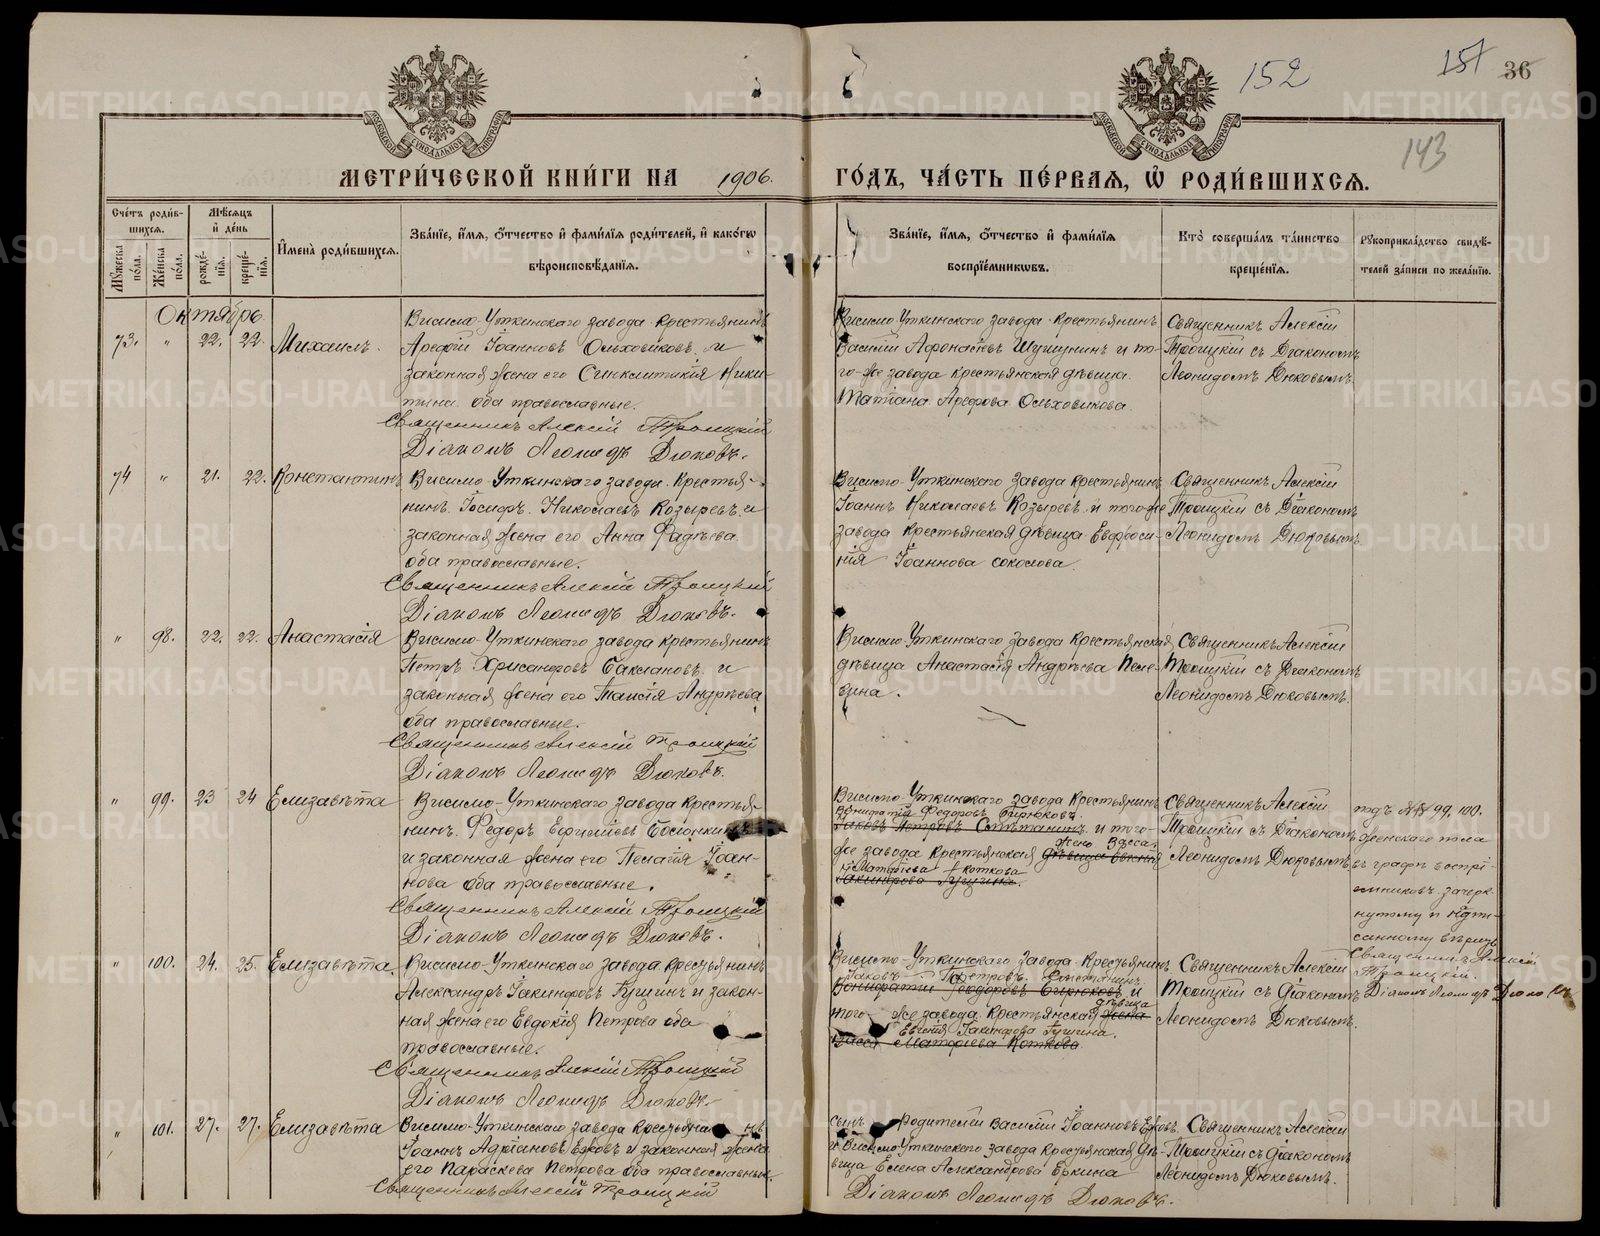 152
157 36
143
МОСКОВСКОЙ СѴНОДАЛЬНОЙ ТИПОГРАФІИ
МЕТРИ́ЧЕСКОЙ КНИ́ГИ НА 1906. ГО́ДЪ, ЧА́СТЬ ПЕ́РВАЯ, Ѽ РОДИ́ВШИХСѦ.
Сче́тъ роди́в-
шихсѧ.
Мѣ́сѧцъ
и҆ де́нь
Мꙋ́жеска по́ла.
Же́нска по́ла.
рожде́-
нїѧ.
креще́-
нїѧ.
И҆мена̀ роди́вшихсѧ.
Зва́нїе, и҆́мѧ, ѻ҆́тчество и҆ фами́лїѧ роди́телей, и҆ како́гѡ
вѣроисповѣ́данїѧ.
Зва́нїе, и҆́мѧ, ѻ҆́тчество и҆ фами́лїѧ
воспрїе́мникѡвъ.
Кто̀ соверша́лъ та́инство
креще́нїѧ.
Рꙋкоприкла́дство свидѣ́-
телей за́писи по жела́нїю.
Октябрь
73. " 22. 22. Михаилъ.
Висимо-Уткинскаго завода крестьянинъ
Арефій Іоанновъ Ольховиковъ и
законная жена его Синклитикія Ники-
тина оба православные.
Священникъ Алексій Троицкій
Діаконъ Леонидъ Дюковъ.
Висимо-Уткинскаго завода крестьянинъ
Василій Афонасіевъ Шушунинъ и то-
го-же завода крестьянская дѣвица
Татіана Арефова Ольховикова.
Священникъ Алексій
Троицкій съ Діакономъ
Леонидомъ Дюковымъ.
74 " 21. 22. Константинъ
Висимо-Уткинскаго завода крестья-
нинъ Іосифъ Николаевъ Козыревъ и
законная жена его Анна Фадѣева
оба православные.
Священникъ Алексій Троицкій
Діаконъ Леонидъ Дюковъ.
Висимо-Уткинскаго завода крестьянинъ
Іоаннъ Николаевъ Козыревъ и того-же
завода крестьянская дѣвица Евфроси-
нія Іоаннова Соколова.
Священникъ Алексій
Троицкій съ Діакономъ
Леонидомъ Дюковымъ.
" 98. 22. 22. Анастасія
Висимо-Уткинскаго завода крестьянинъ
Петръ Хрисанфовъ Баклановъ и
законная жена его Таисія Андрѣева
оба православные.
Священникъ Алексій Троицкій
Діаконъ Леонидъ Дюковъ.
Висимо-Уткинскаго завода крестьянская
дѣвица Анастасія Андрѣева Пеле-
вина.
Священникъ Алексій
Троицкій съ Діакономъ
Леонидомъ Дюковымъ.
" 99. 23 24 Елизавѣта
Висимо-Уткинскаго завода крестья-
нинъ Федоръ
и законная жена его Пелагія Іоан-
нова оба православные.
Священникъ Алексій Троицкій
Діаконъ Леонидъ Дюковъ.
Висимо-Уткинскаго завода крестьянинъ
Вонифатій Федоровъ Бирюковъ
Іаковъ Петровъ Сметанинъ и того-
жена Васса
же завода крестьянская дѣвица Евгенія
Матфіева Коткова
Іакинфова Гущина.
Священникъ Алексій
Троицкій съ Діакономъ
Леонидомъ Дюковымъ.
подъ №№ 99, 100.
женскаго пола
въ графѣ воспрі-
емниковъ зачерк-
нутому и надпи-
санному вѣрить
Священникъ Алексій
Троицкій.
Діаконъ Леонидъ Дюковъ
" 100. 24. 25. Елизавѣта.
Висимо-Уткинскаго завода крестьянинъ
Александръ Іакинфовъ Гущинъ и закон-
ная жена его Евдокія Петрова оба
православные.
Священникъ Алексій Троицкій
Діаконъ Леонидъ Дюковъ.
Висимо-Уткинскаго завода крестьянинъ
Іаковъ Петровъ Сметанинъ
Вонифатій Феодоровъ Бирюковъ и
дѣвица
того-же завода крестьянская жена
Евгенія Іакинфова Гущина.
Васса Матфіева Коткова.
Священникъ Алексій
Троицкій съ Діакономъ
Леонидомъ Дюковымъ.
" 101. 27. 27. Елизавѣта
Висимо-Уткинскаго завода крестьянинъ
Іоаннъ Адріановъ Ежовъ и законная жена
его Параскева Петрова оба православные.
Священникъ Алексій Троицкій
Діаконъ Леонидъ Дюковъ.
сынъ родителей Василій Іоанновъ Ежовъ
и Висимо-Уткинскаго завода крестьянская дѣ-
вица Елена Александрова Еркина
Священникъ Алексій
Троицкій съ діакономъ
Леонидомъ Дюковымъ.
METRIKI.GASO-URAL.RU